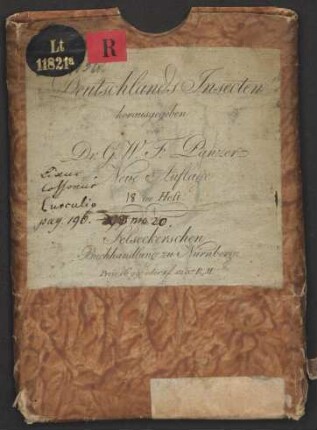 Lt
11821a
R
Deutschlands Insecten
herausgegeben
Dr. G. W. F. Panzer
Neue Auflage
18 tes Heft
Curculio
pag. 196. no 20.
Felseckerschen
Buchhandlung zu Nürnberg